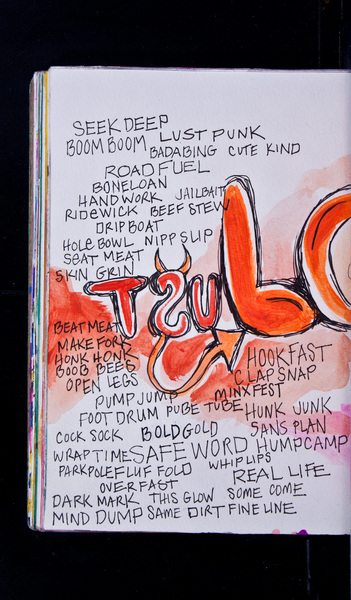 SEEK DEEP
BOOM BOOM LUST PUNK
BADABING CUTE KIND
ROAD FUEL
BONELOAN
HANDWORK JAILBAIT
RIDEWICK BEEF STEW
DRIP BOAT
HOLE BOWL NIPPSLIP
SEAT MEAT
SKIN GRIN
TSUL
BEAT MEAT
MAKE FORK
HONK HONK HOOKFAST
BOOB BEEB CLAPSNAP
OPEN LEGS MINXFEST
PUMP JUMP
FOOT DRUM PUBE TUBE HUNK JUNK
COCK SOCK BOLDGOLD SANS PLAN
WRAPTIME SAFE WORD HUMPCAMP
PARKPOLE FLUF FOLD WHIPLIPS
OVERFAST REAL LIFE
DARK MARK THIS GLOW SOME COME
MIND DUMP SAME DIRT FINE LINE